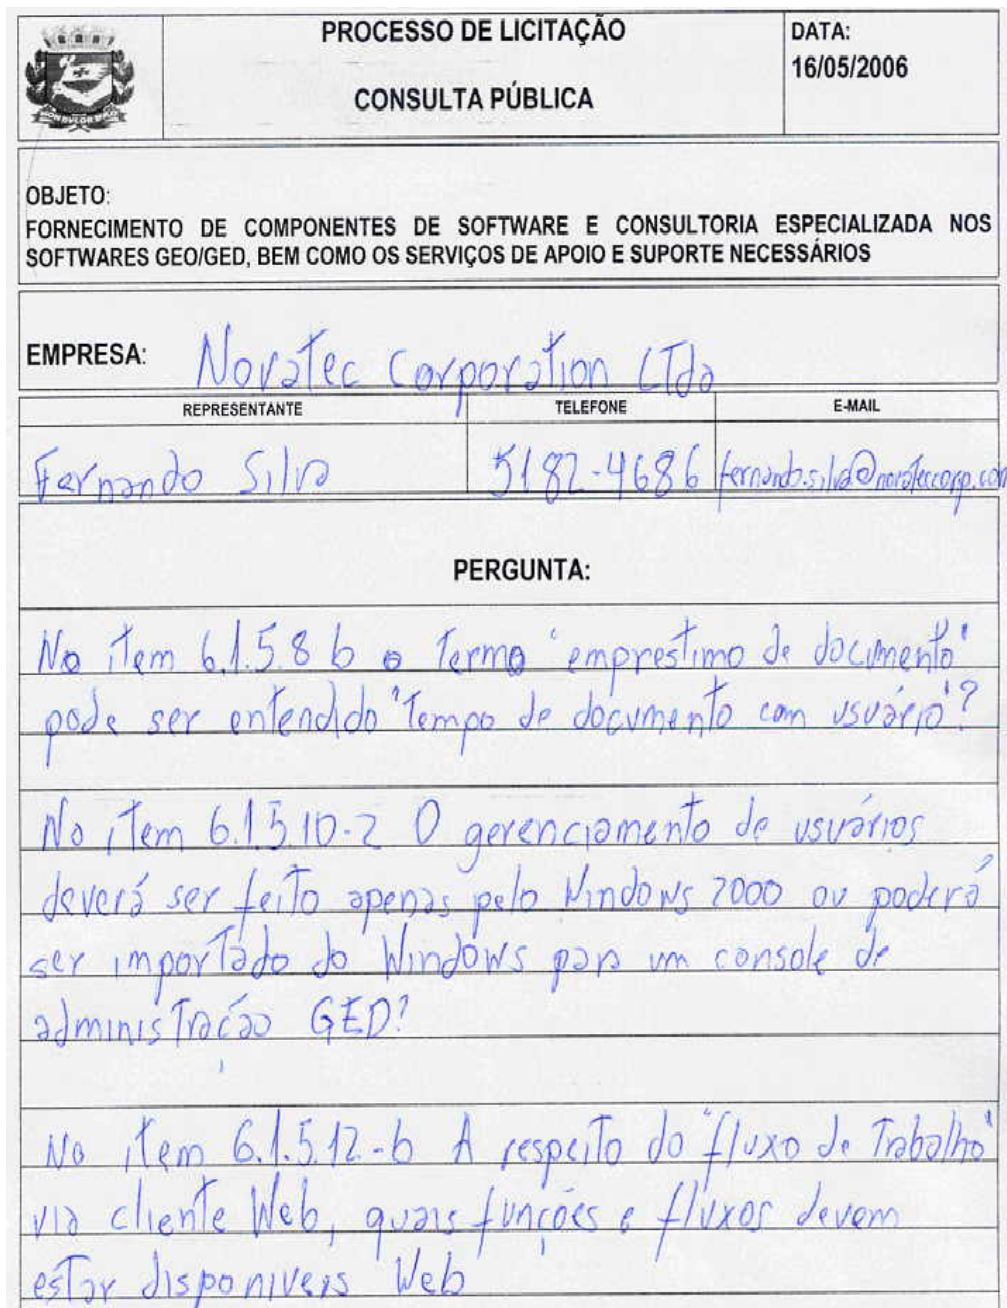 PROCESSO DE LICITAÇÃO
CONSULTA PÚBLICA
DATA:
16/05/2006
OBJETO:
FORNECIMENTO DE COMPONENTES DE SOFTWARE E CONSULTORIA ESPECIALIZADA NOS
SOFTWARES GEO/GED, BEM COMO OS SERVIÇOS DE APOIO E SUPORTE NECESSÁRIOS
EMPRESA: Novatec Corporation LTda
REPRESENTANTE TELEFONE E-MAIL
Fernando Silva 5182-4686 fernando.silva@novateccorp.com
PERGUNTA:
No item 6.1.5.8 b o Termo "emprestimo de documento"
pode ser entendido "Tempo de documento com usuário"?
No item 6.1.5.10-2 O gerenciamento de usuários
deverá ser feito apenas pelo Windows 2000 ou poderá
ser importado do Windows para um console de
administração GED?
No item 6.1.5.12-b A respeito do "fluxo de Trabalho"
via cliente Web, quais funções e fluxos devem
estar disponiveis Web